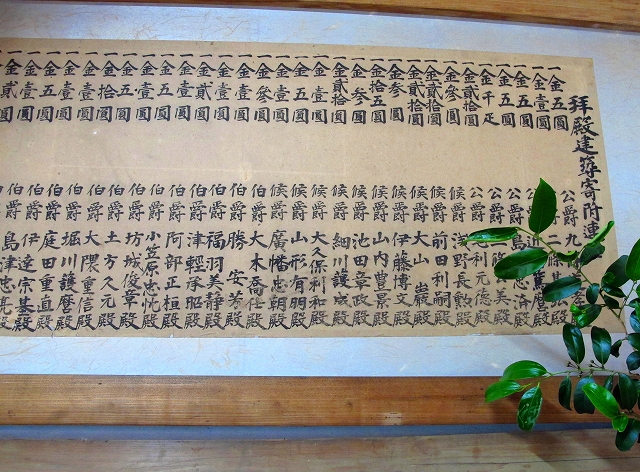 拜殿建築寄附連
一金五圓 公爵 九條
一金壹圓 公爵 二條基
一金五圓 公爵 近 篤麿殿
一金五圓 公爵 島 忠済殿
一金千疋 公爵 條 美殿
一金貳拾圓 公爵 利元徳殿
一金參圓 侯爵 浅野長勲殿
一金貳拾圓 侯爵 前田利嗣殿
一金貳拾圓 侯爵 大山巌殿
一金参圓 侯爵 伊藤博文殿
一金拾五圓 侯爵 山内豊景殿
一金参圓 侯爵 池田章政殿
一金貳拾圓 侯爵 細川護成殿
一金壹圓 侯爵 大久保利和殿
一金五圓 侯爵 山形有朋殿
一金壹圓 侯爵 廣幡忠朝殿
一金參圓 伯爵 大木喬任殿
一金壹圓 伯爵 勝安芳殿
一金壹圓 伯爵 福羽美静殿
一金貳圓 伯爵 津軽承昭殿
一金壹圓 伯爵 阿部正桓殿
一金五圓 伯爵 小笠原忠忱殿
一金壹圓 伯爵 坊城俊章殿
一金五圓 伯爵 土方久元殿
一金拾圓 伯爵 大隈重信殿
一金壹圓 伯爵 堀川護麿殿
一金五圓 伯爵 庭田重直殿
一金壹圓 伯爵 伊達宗基殿
一金貳圓 伯爵 島津忠亮殿